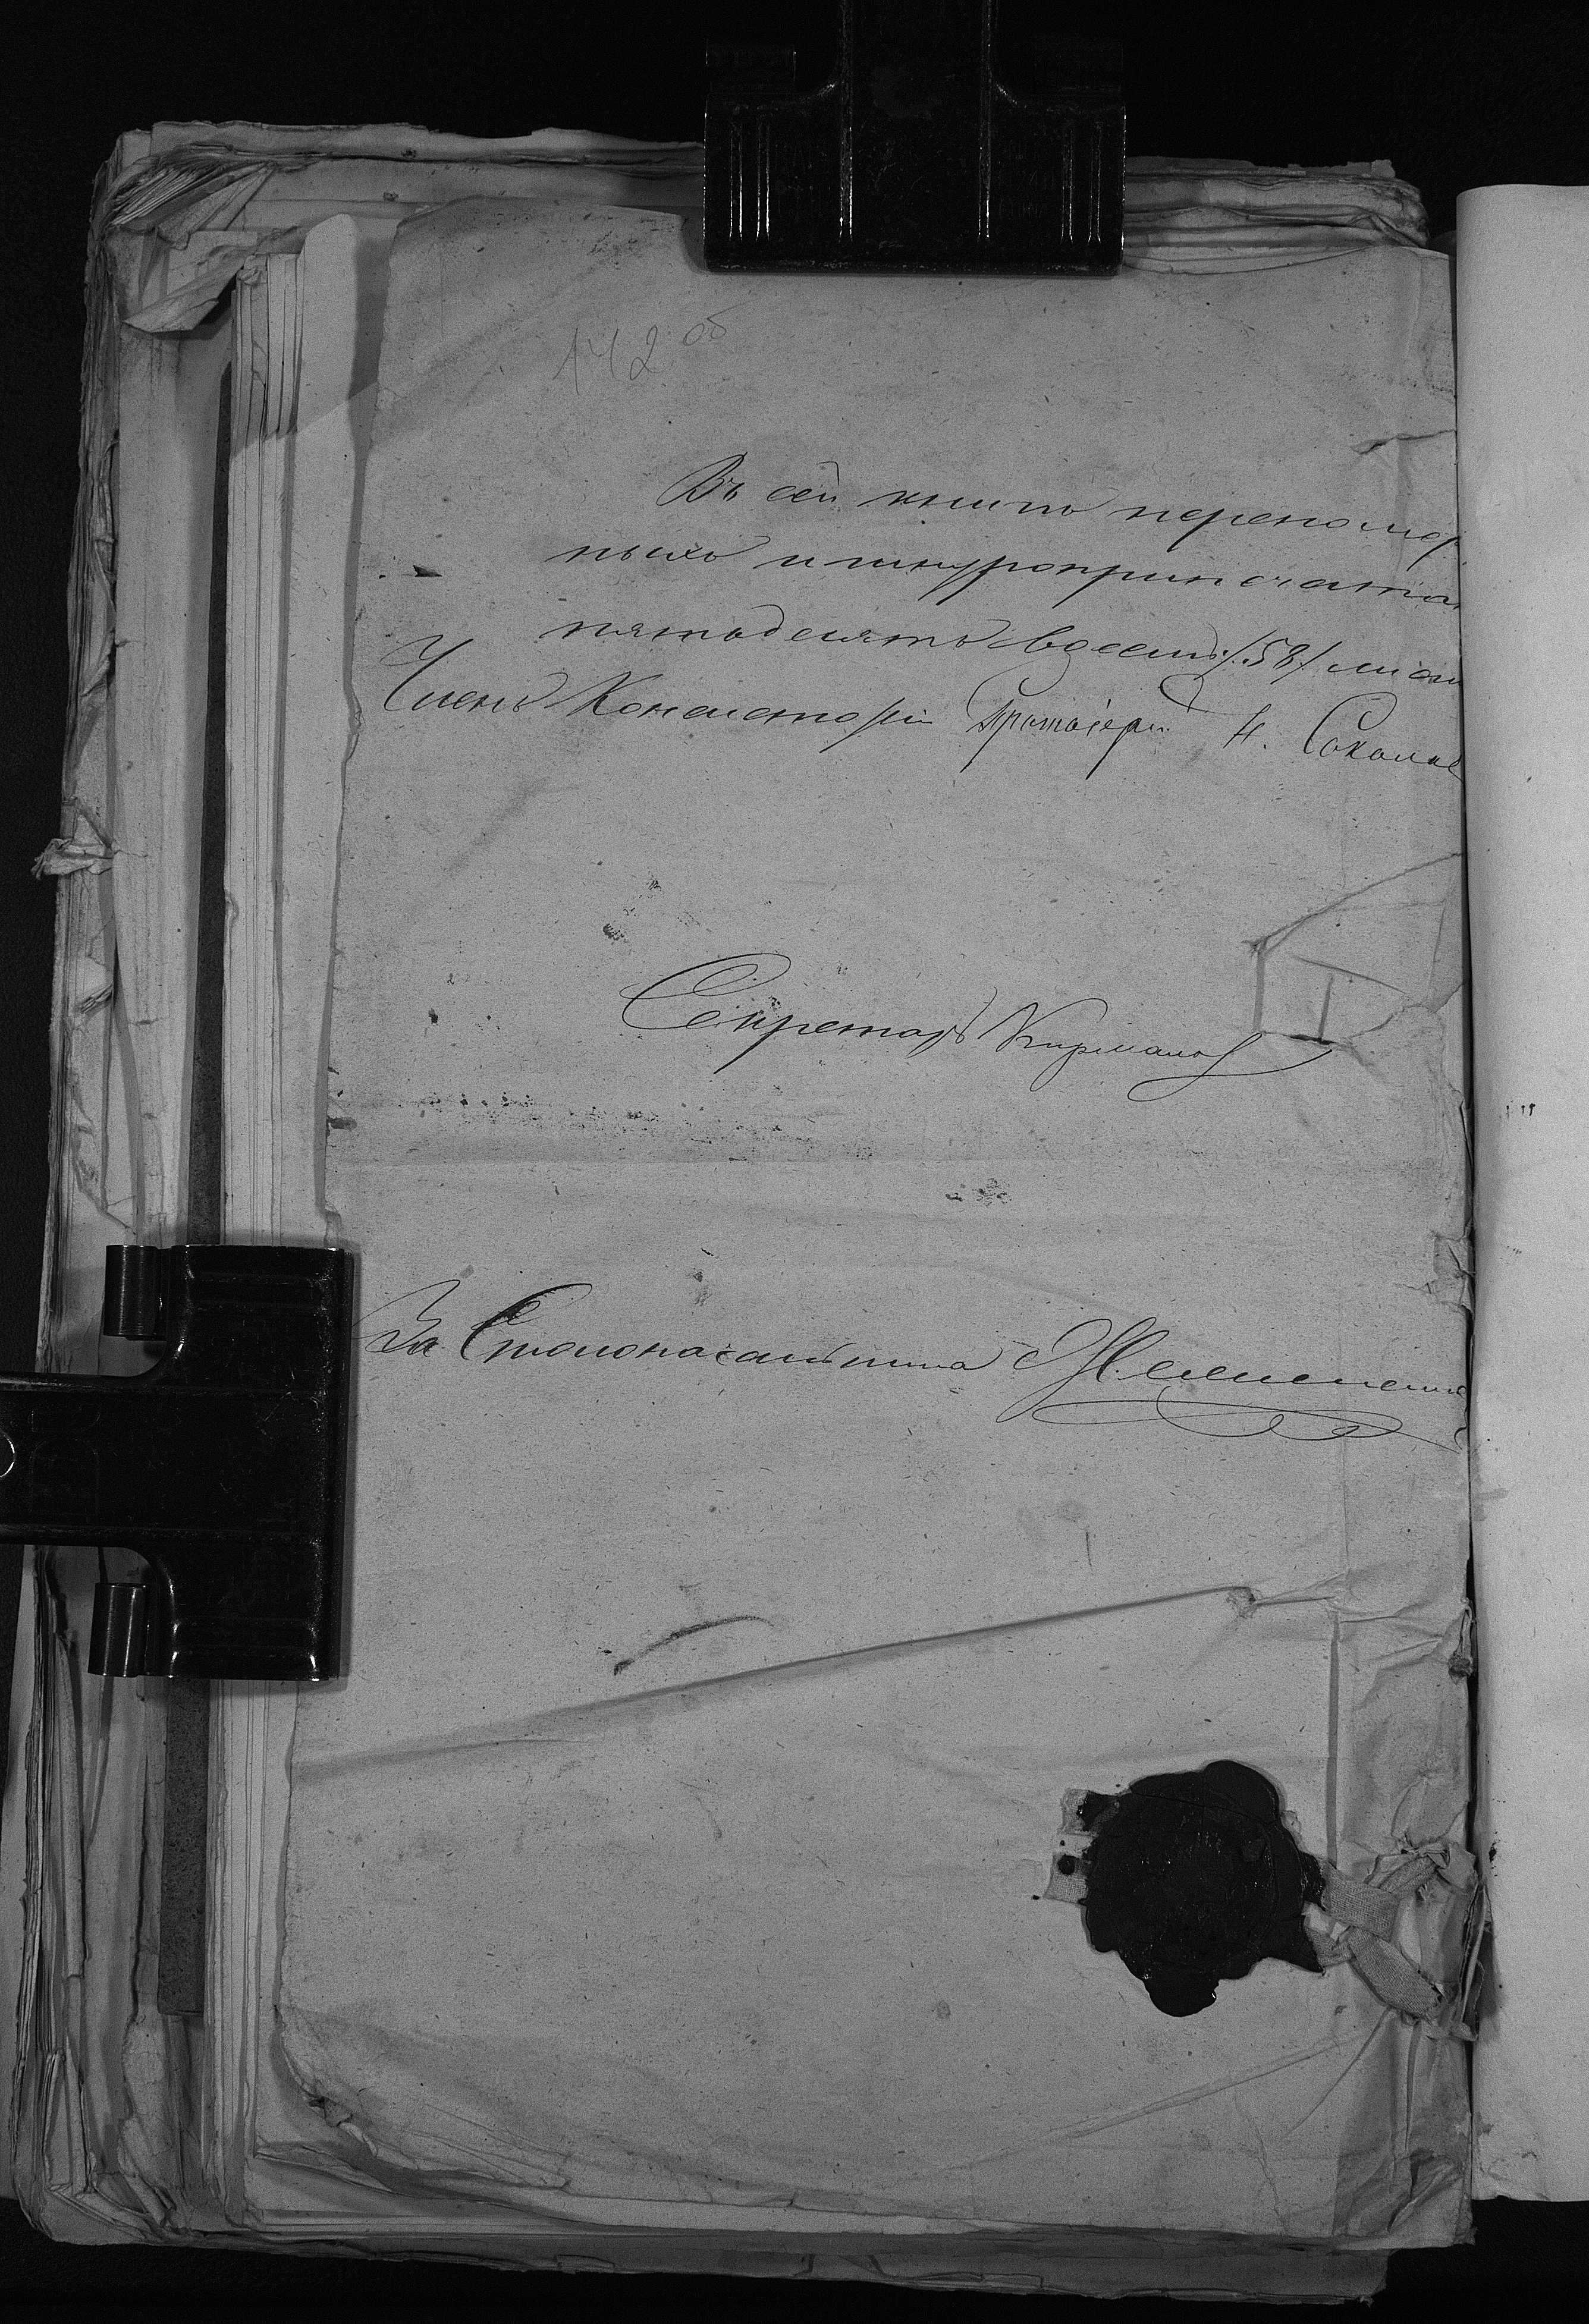 142 об
Въ сей книгѣ переномер
ныхъ и шнуроприпечата
пятьдесятъ восемь /:58:/ лист
Членъ Консисторіи Протоіерей Н. Соколов
Секретарь
За Столоначальника